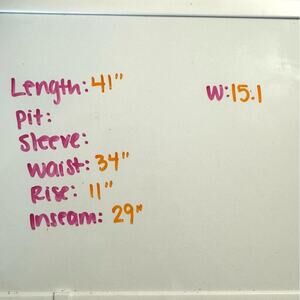 Length: 41"
W:15.1
Pit:
Sleeve:
Waist: 34"
Rise: 11"
Inseam: 29"